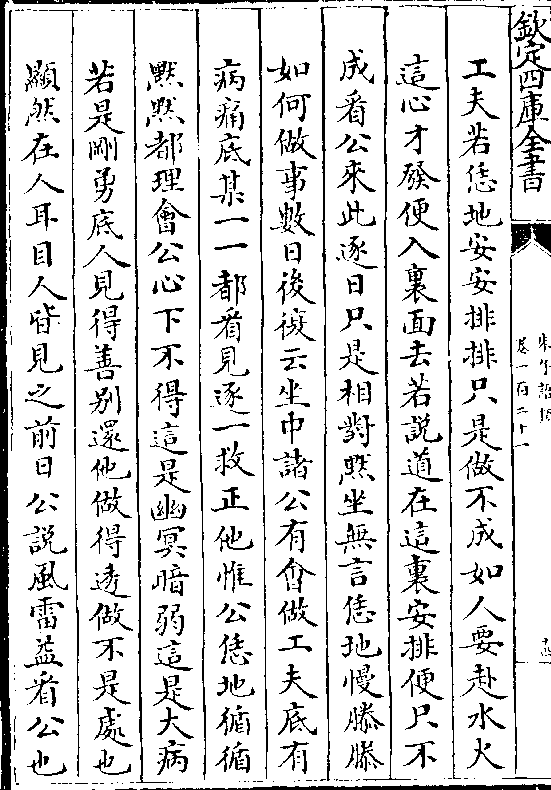 欽定四庫全書
朱子語類
卷一百二十一
工夫若恁地安安排排只是做不成如人要赴水火
這心才發便入裏面去若說道在這裏安排便只不
成看公來此逐日只是相對黙坐無言恁地慢滕滕
如何做事數日後復云坐中諸公有㑹做工夫底有
病痛底某一一都看見逐一救正他惟公恁地循循
黙黙都理會公心下不得這是幽冥暗弱這是大病
若是剛勇底人見得善别還他做得透做不是處也
顯然在人耳目人皆見之前日公說風雷益看公也